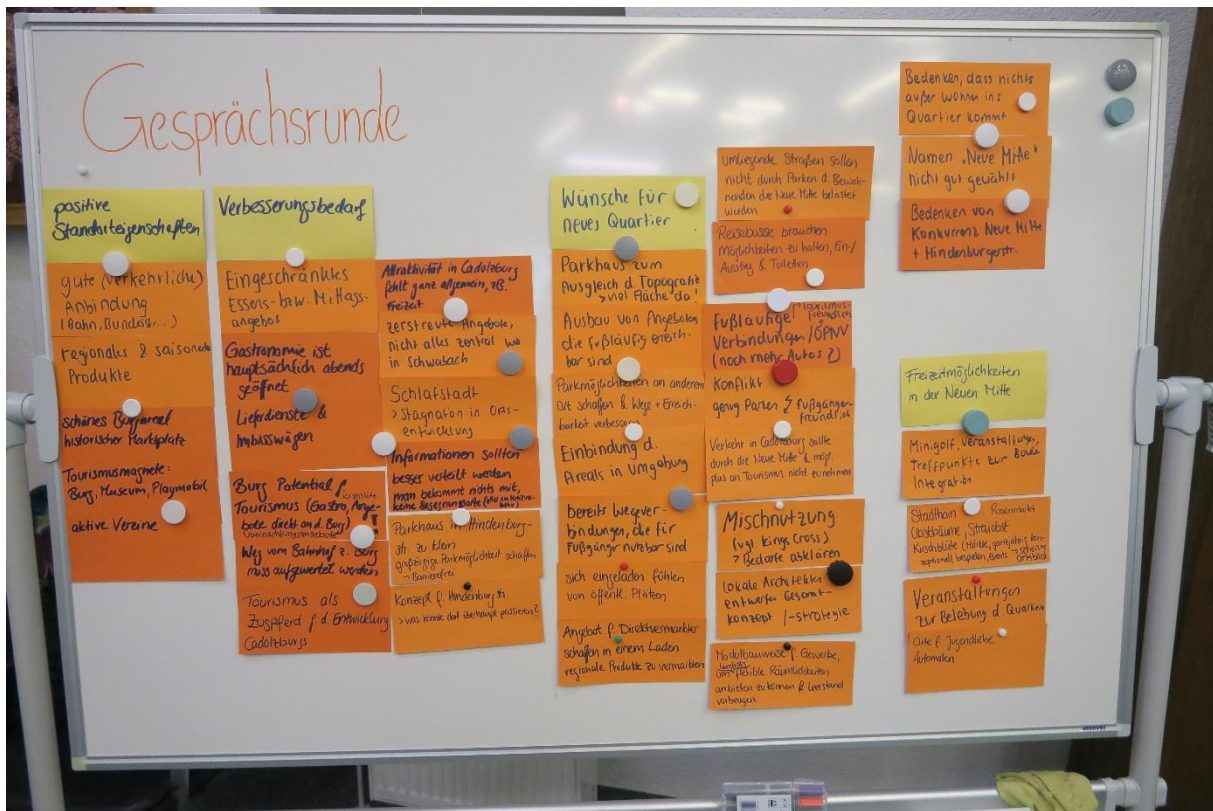 Gesprächsrunde
positive
Standorteigenschaften
gute (verkehrliche)
Anbindung
(Bahn, Bundesstr...)
regionales & saisonale
Produkte
schönes Burgareal
historischer Marktplatz
Tourismusmagnete:
Burg, Museum, Playmobil
aktive Vereine
Verbesserungsbedarf
Eingeschränktes
Essens- bzw. Mittags-
angebot
Gastronomie ist
hauptsächlich abends
geöffnet
Lieferdienste &
Imbisswägen
Burg Potential f.
Tourismus (Gastro, Ange-
bote direkt an d. Burg)
Übernachtungsangebote
Weg vom Bahnhof z. Burg
muss aufgewertet werden
Tourismus als
Zugpferd f. d. Entwicklung
Cadolzburgs
Attraktivität in Cadolzburg
fehlt ganz allgemein, zB.
Freizeit
zerstreute Angebote,
nicht alles zentral wie
in Schwabach
Schlafstadt
> Stagnation in Orts-
entwicklung
Informationen sollten
besser verteilt werden
man bekommt nichts mit,
keine Begegnungsorte
Parkhaus in Hindenburg-
str. zu klein
großzügige Parkmöglichkeit schaffen
→ Barrierefrei
Konzept f. Hindenburgstr.
> was könnte dort überhaupt passieren?
Wünsche für
neues Quartier
Parkhaus zum
Ausgleich d. Topografie
> viel Fläche da!
Ausbau von Angeboten
die fußläufig erreich-
bar sind
Parkmöglichkeiten an anderem
Ort schaffen & Wege + Erreich-
barkeit verbessern
Einbindung d.
Areals in Umgebung
bereits Wegever-
bindungen, die für
Fußgänger nutzbar sind
sich eingeladen fühlen
von öffentl. Plätzen
Angebot f. Direktvermarkter
schaffen in einem Laden
regionale Produkte zu vermarkten
umliegende Straßen sollen
nicht durch Parken d. Bewoh-
nenden die Neue Mitte belastet
werden
Reisebusse brauchen
möglichkeiten zu halten, Ein-/
Ausstieg & Toiletten
fußläufige
Verbindungen /ÖPNV
(noch mehr Autos?)
Tourismus-
freundlich
Konflikt
genug Parken ↯ Fußgänger-
freundlich
Verkehr in Cadolzburg sollte
durch die Neue Mitte & mögl.
plus an Tourismus nicht zunehmen
Mischnutzung
(vgl. Kings Cross)
> Bedarfe abklären
Lokale Architekten
entwerfen Gesamt-
konzept /-strategie
Modulbauweise f. Gewerbe,
um flexible Räumlichkeiten
anbieten zu können & Leerstand
vorbeugen
Bedenken, dass nichts
außer Wohnen ins
Quartier kommt
Namen "Neue Mitte"
nicht gut gewählt
Bedenken von
Konkurrenz Neue Mitte
+ Hindenburgstr.
Freizeitmöglichkeiten
in der Neuen Mitte
Minigolf, Veranstaltungen,
Treffpunkte zur
Integration
Stadthain
Rosenmarkt
Obstbäume, Streuobst
Kirschblüte (Märkte, ganzjährig kon-
zeptionell bespielen, Events → schönes
Ortsbild
Veranstaltungen
zur Belebung d. Quartiers
Orte f. Jugendliche
Automaten